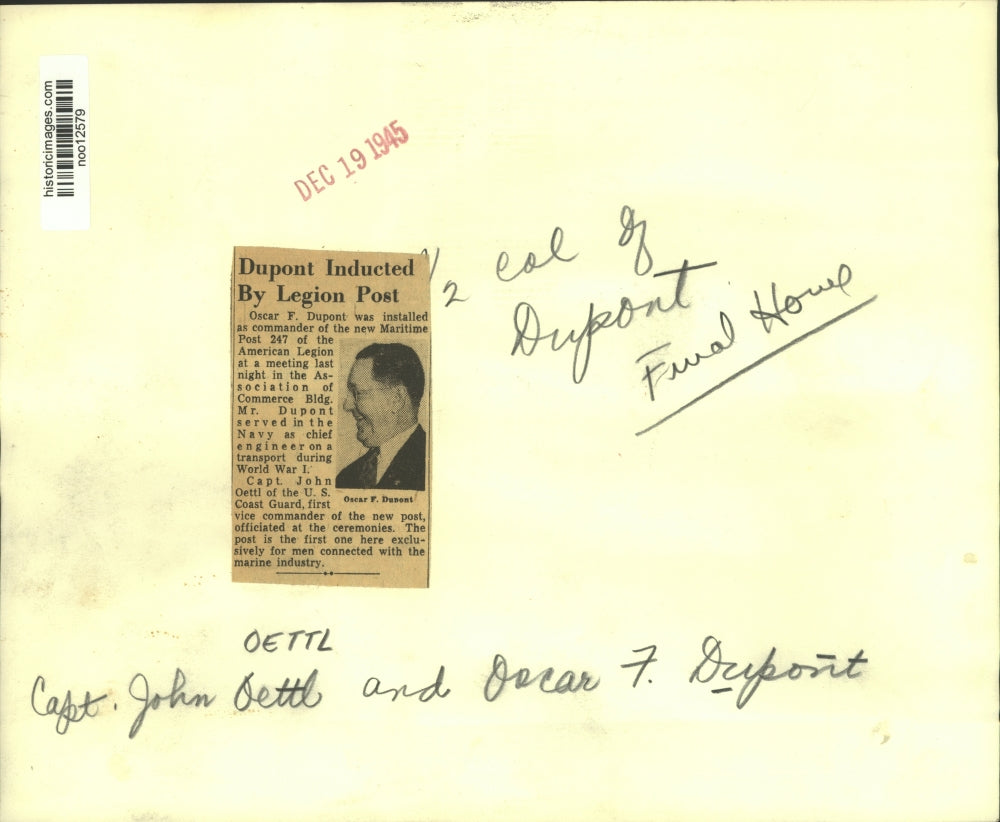 historicimages.com
noo12579
DEC 19 1945
1/2 col of
Dupont
Final Home
Dupont Inducted
By Legion Post
Oscar F. Dupont was installed
as commander of the new Maritime
Post 247 of the
American Legion
at a meeting last
night in the As-
sociation of
Commerce Bldg.
Mr. Dupont
served in the
Navy as chief
engineer on a
transport during
World War I.
Capt. John
Oettl of the U. S.
Coast Guard, first
vice commander of the new post,
officiated at the ceremonies. The
post is the first one here exclu-
sively for men connected with the
marine industry.
Oscar F. Dupont
OETTL
Capt. John Oettl and Oscar F. Dupont